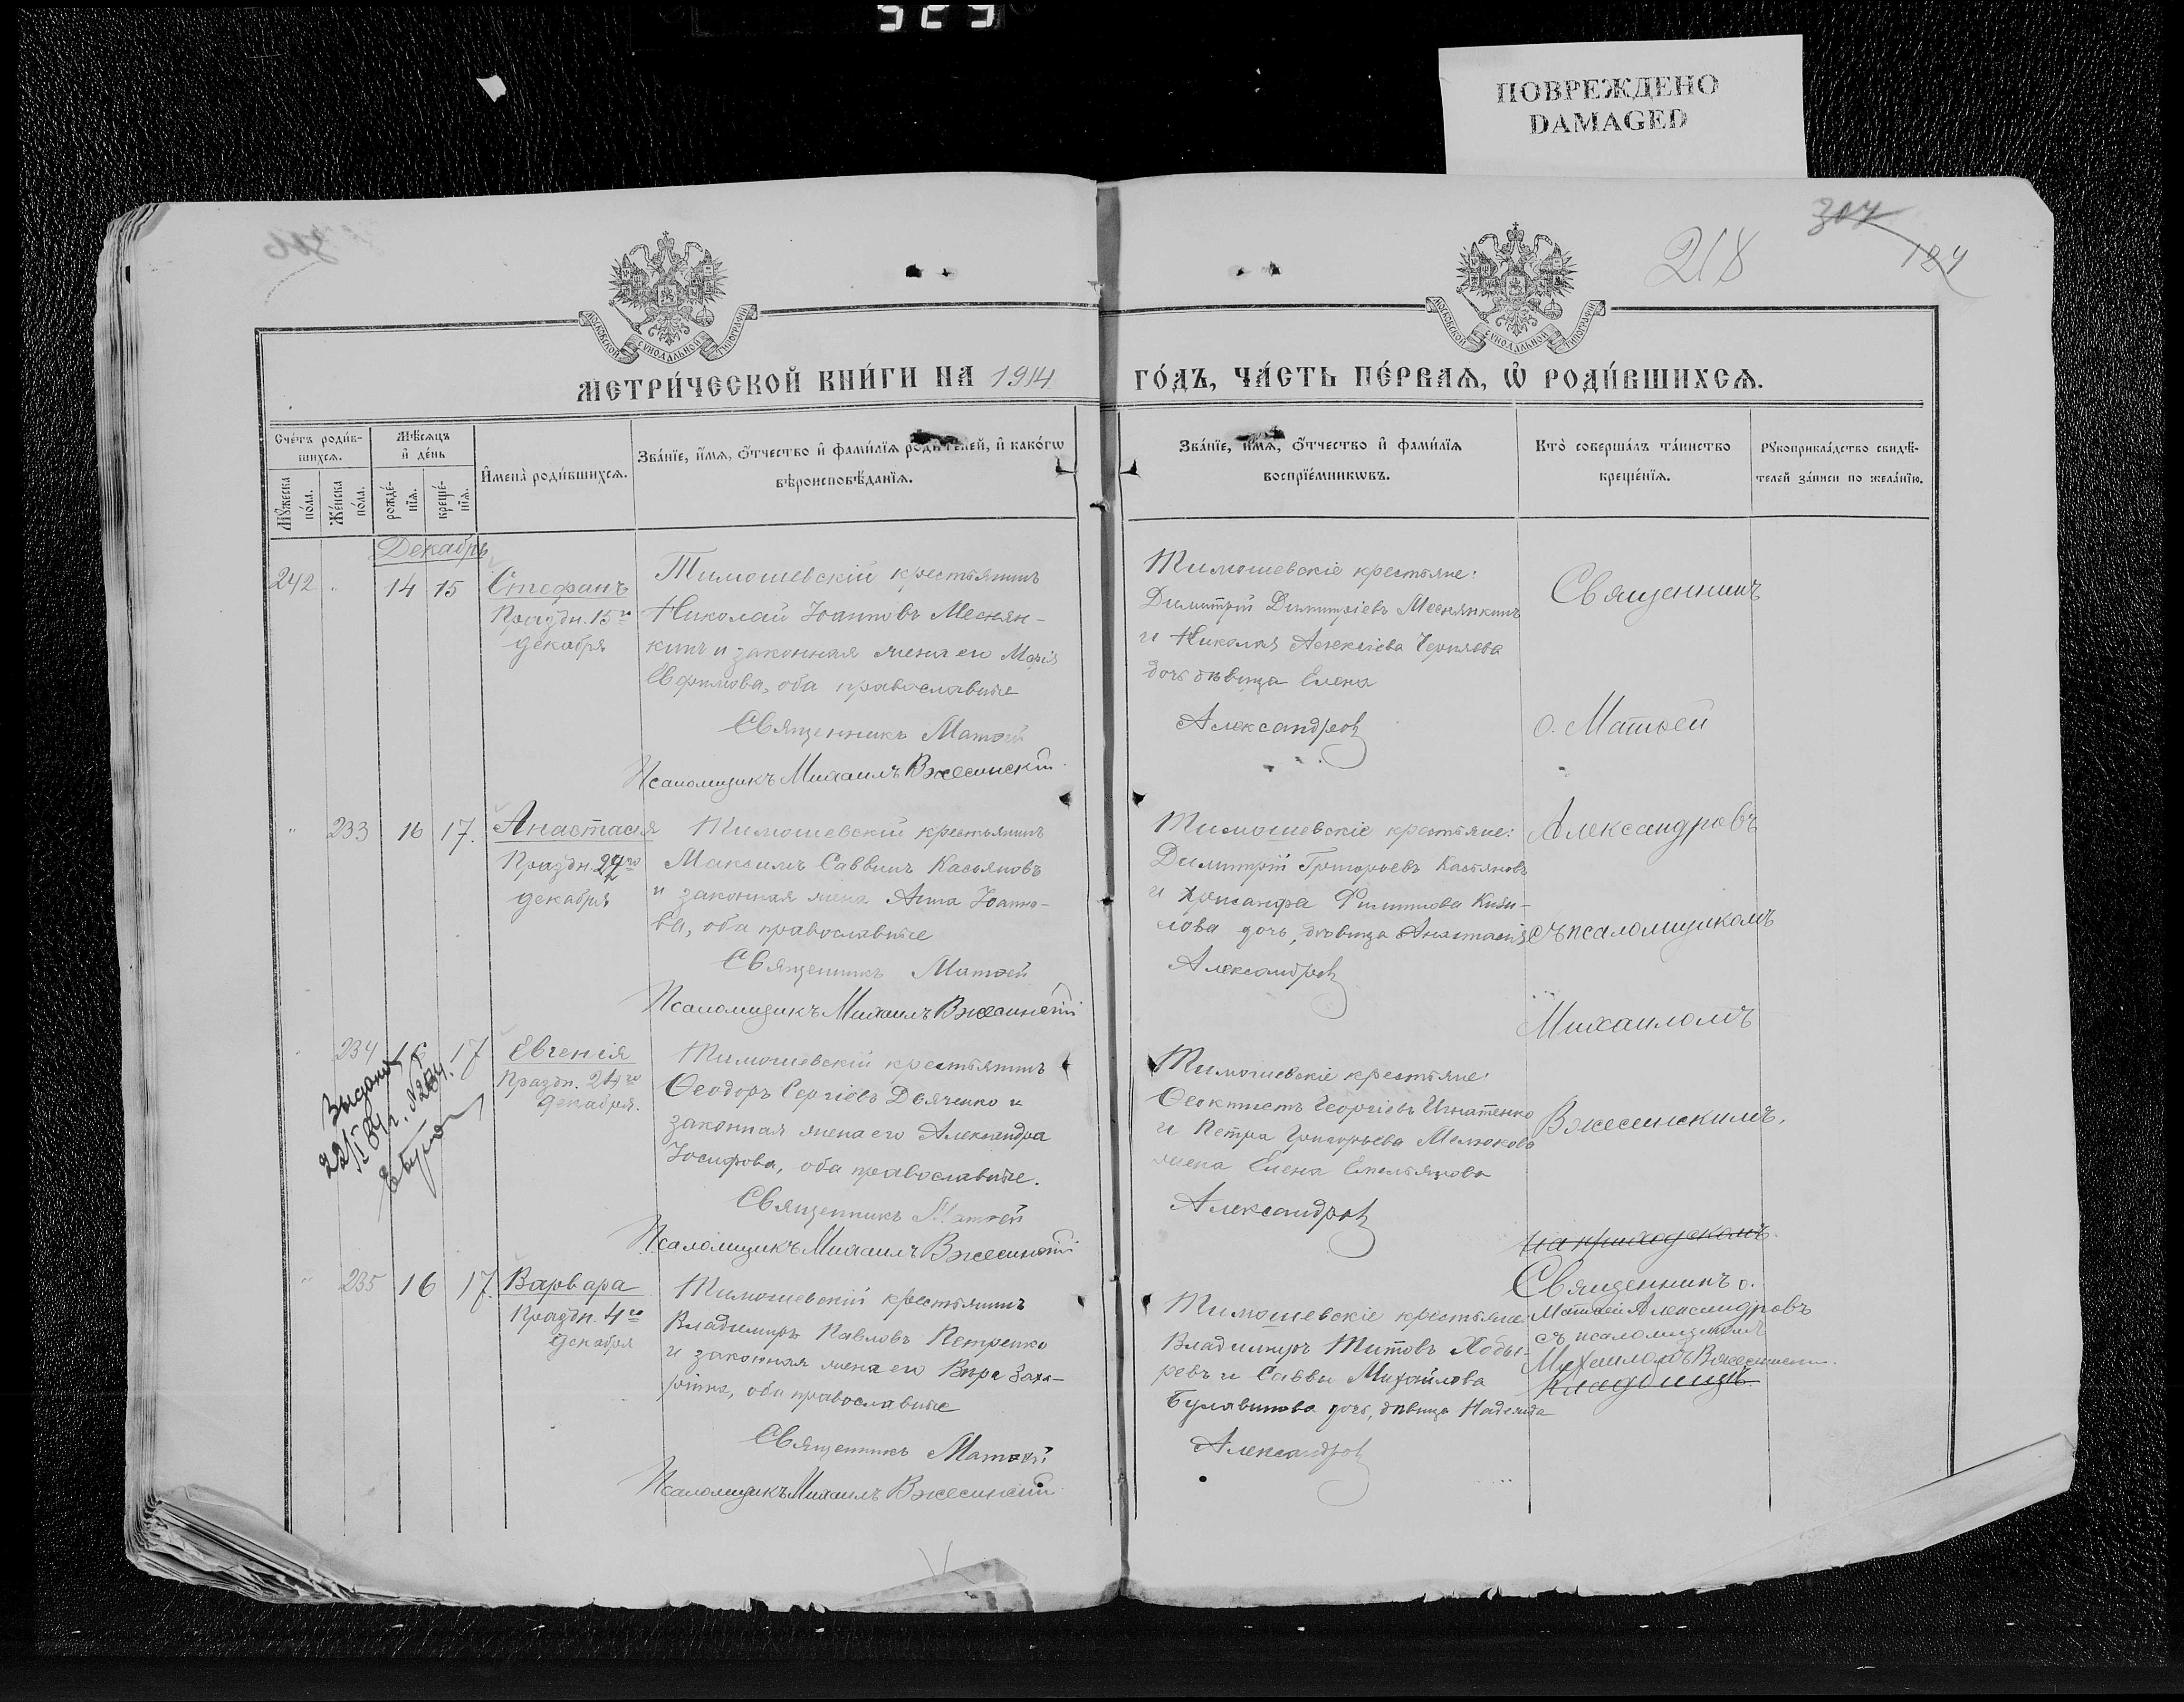 ПОВРЕЖДЕНО
DAMAGED
218
307
184
МОСКОВСКОЙ СѴНОДАЛЬНОЙ ТИПОГРАФІИ
МОСКОВСКОЙ СѴНОДАЛЬНОЙ ТИПОГРАФІИ
МЕТРИ́ЧЕСКОЙ КНИ́ГИ НА 1914
ГО́ДЪ, ЧА́СТЬ ПЕ́РВАѦ, Ѽ РОДИ́ВШИХСѦ.
Сче́тъ роди́в-
шихсѧ.
Мѣ́сѧцъ
и҆ де́нь
Мꙋ́жеска
по́ла.
Же́нска
по́ла.
рожде́-
нїѧ.
креще́-
нїѧ.
И҆мена̀ роди́вшихсѧ.
Зва́нїе, и҆́мѧ, ѻ҆́тчество и҆ фамі́лїѧ роди́телей, и҆ како́гѡ
вѣроисповѣ́данїѧ.
Зва́нїе, и҆́мѧ, ѻ҆́тчество и҆ фамі́лїѧ
воспрїе́мникѡвъ.
Кто̀ соверша́лъ та́инство
креще́нїѧ.
Рꙋкоприкла́дство свидѣ́-
телей за́писи по жела́нїю.
Декабрь
242 " 14 15 Стефанъ
Праздн. 15го
декабря
Тимошевскій крестьянинъ
Николай Іоанновъ Меснян-
кинъ и законная жена его Марія
Ефимова, оба православные
Священникъ Матѳей
Псаломщикъ Михаилъ Вжесинскій
Тимошевскіе крестьяне:
Димитрій Димитріевъ Меснянкинъ
и Николая Алексіева Черняева
дочь дѣвица Елена
Александровъ
Священникъ
о. Матѳей
Александровъ
съ псаломщикомъ
Михаиломъ
Вжесинскимъ.
" 233 16 17. Анастасія
Праздн. 22го
декабря
Тимошевскій крестьянинъ
Максимъ Саввинъ Касьяновъ
и законная жена Анна Іоанно-
ва, оба православные
Священникъ Матѳей
Псаломщикъ Михаилъ Вжесинскій
Тимошевскіе крестьяне:
Димитрій Григорьевъ Касьяновъ
и Хрисанфа Филиппова Кизи-
лова дочь, дѣвица Анастасія
Александровъ
" 234 16 17 Евгенія
Праздн. 24го
декабря.
Тимошевскій крестьянинъ
Ѳеодоръ Сергіевъ Дьяченко и
законная жена его Александра
Іосифова, оба православные.
Священникъ Матѳей
Псаломщикъ Михаилъ Вжесинскій
Тимошевскіе крестьяне:
Ѳеоктистъ Георгіевъ Игнатенко
и Петра Григорьева Мелюкова
жена Елена Емельянова
Александровъ
на приходскомъ
" 235 16 17. Варвара
Праздн. 4го
декабря
Тимошевскій крестьянинъ
Владимиръ Павловъ Петренко
и законная жена его Вѣра Заха-
ріина, оба православные
Священникъ Матѳей
Псаломщикъ Михаилъ Вжесинскій
Тимошевскіе крестьяне
Владимиръ Титовъ Лобы-
ревъ и Саввы Михайлова
Булавинова дочь, дѣвица Надежда
Александровъ
Священникъ о.
Матѳей Александровъ
съ псаломщикомъ
Михаиломъ Вжесинским.
кладбищѣ.